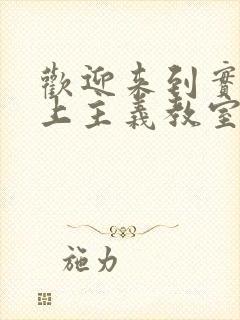 歡迎來到實
上主義教室
施力